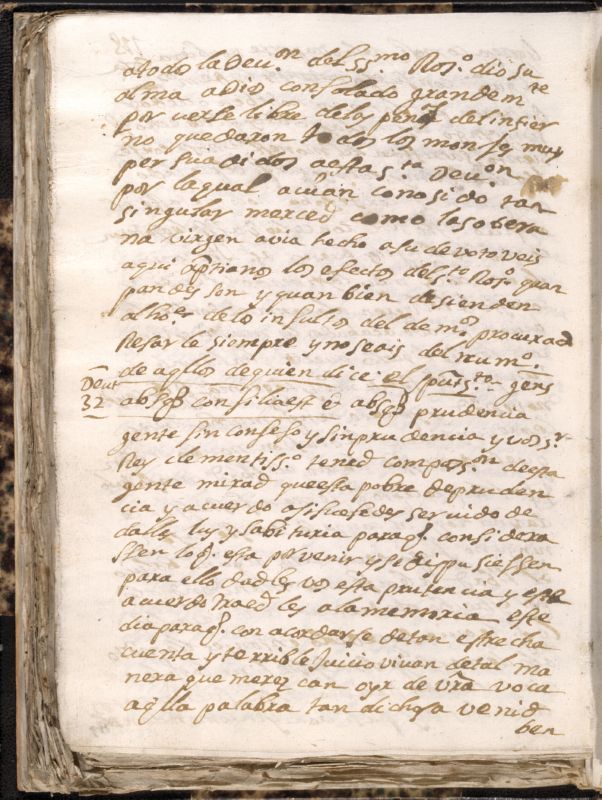 atodos la Deu.on del ss.mo Ros.o dio su
alma a Dios consolado grandem.te
por verse libre de las penas del infier
no quedaron todos los monjes muy
persuadidos a esta s.ta Deu.on
por la qual avian conosido tan
singular merced como la sobera
na virgen avia hecho a su devoto veis
aqui xptianos los efectos del s.to Ros.o quan
grandes son y quan bien desienden
a lho.es de los insultos del demo.o procurad
Resarle siempre y no seais del num.o
de aqllos de quien dice el spũ s.to gens
Deut
32 absq consilio est et absq prudencia
gente sin consejo y sin prudencia y vos s.r
Rey clementiss.o tened compas.on de esta
gente mirad que esta pobre de pruden
cia y acuerdo asi sesedes servido de
dalles lus y sabituria paraq considera
ssen loq esta por venir y si dispusiessen
para ello dadles vos esta prutencia y este
acuerdo traedles a la memoria este
dia paraq con acordarse de tan estrecha
cuenta y terrible Juicio vivan de tal ma
nera que merezcan oyr de vr̃a voca
aqlla palabra tan dichosa venid
ben